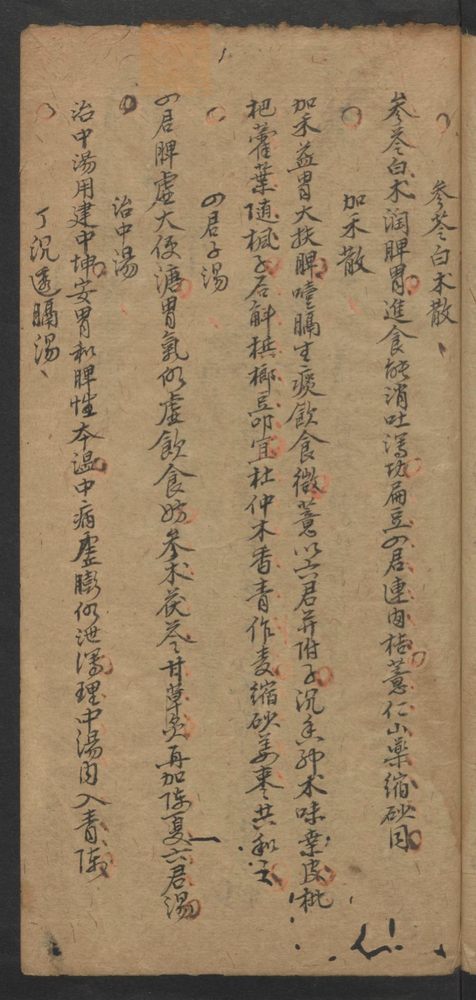 參苓白朮散
參苓白朮润脾胃進食能消吐瀉功扁豆四君連肉桔薏仁山藥縮砂同
加禾散
加禾益胃大扶脾噎膈生痰飲食微薏以六君并附子沉香神朮味桑皮枇
杷藿葉随楓子石斛梹榔豆叩宜杜仲木香青作麦縮砂姜枣共和之
四君子湯
四君脾虚大便溏胃氣仍虚飲食妨參朮茯苓甘草炙再加陈夏六君湯
治中湯
治中湯用建中坤安胃和脾性本温中痛虚膨仍泄瀉理中湯内入青陈
丁沉透膈湯